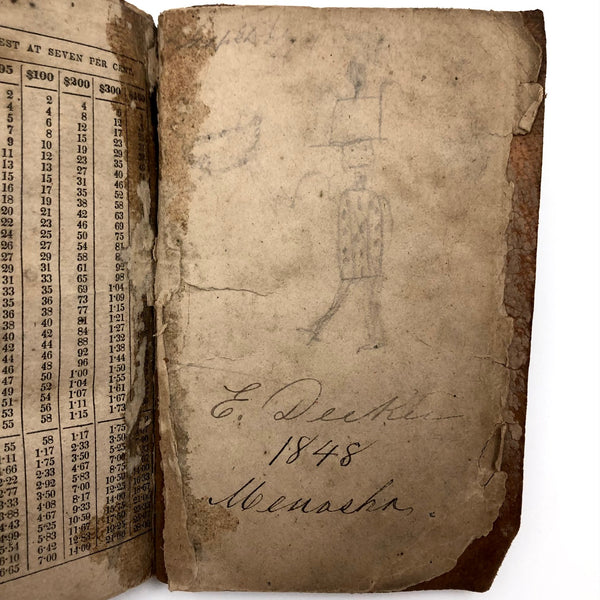 EST AT SEVEN PER CENT.
95 $100 $200 $300
2 2 4 6
4 4 8 12
5 6 12 17
7 8 15 23
9 10 19 29
11 12 23 35
13 13 27 40
15 15 31 46
16 17 35 52
18 19 38 58
20 21 42 63
22 23 46 69
24 25 50 75
26 27 54 81
27 29 58
29 31 61 92
31 33 65 98
33 35 69 1·04
35 36 73 1·09
36 38 77 1·15
38 40 81 1·21
40 42 84 1·27
42 44 88 1·32
44 46 92 1·38
46 48 96 1·44
47 50 1·00 1·50
49 52 1·04 1·55
51 54 1·07 1·61
53 56 1·11 1·67
55 58 1·15 1·73
55 58 1·17 1·75
1·17 2·33 3·50
1·66 1·75 3·50 5·25
2·22 2·33 4·67 7·00
2·77 2·92 5·83
3·50 7·00 10·50
4·08 8·17
4·67 9·33 14·00
4·43 5·25 10·50
4·99 5·83
5·54 6·42 12·83
6·65 7·00 14·00 21·00
E. Decker
1848
Menasha.